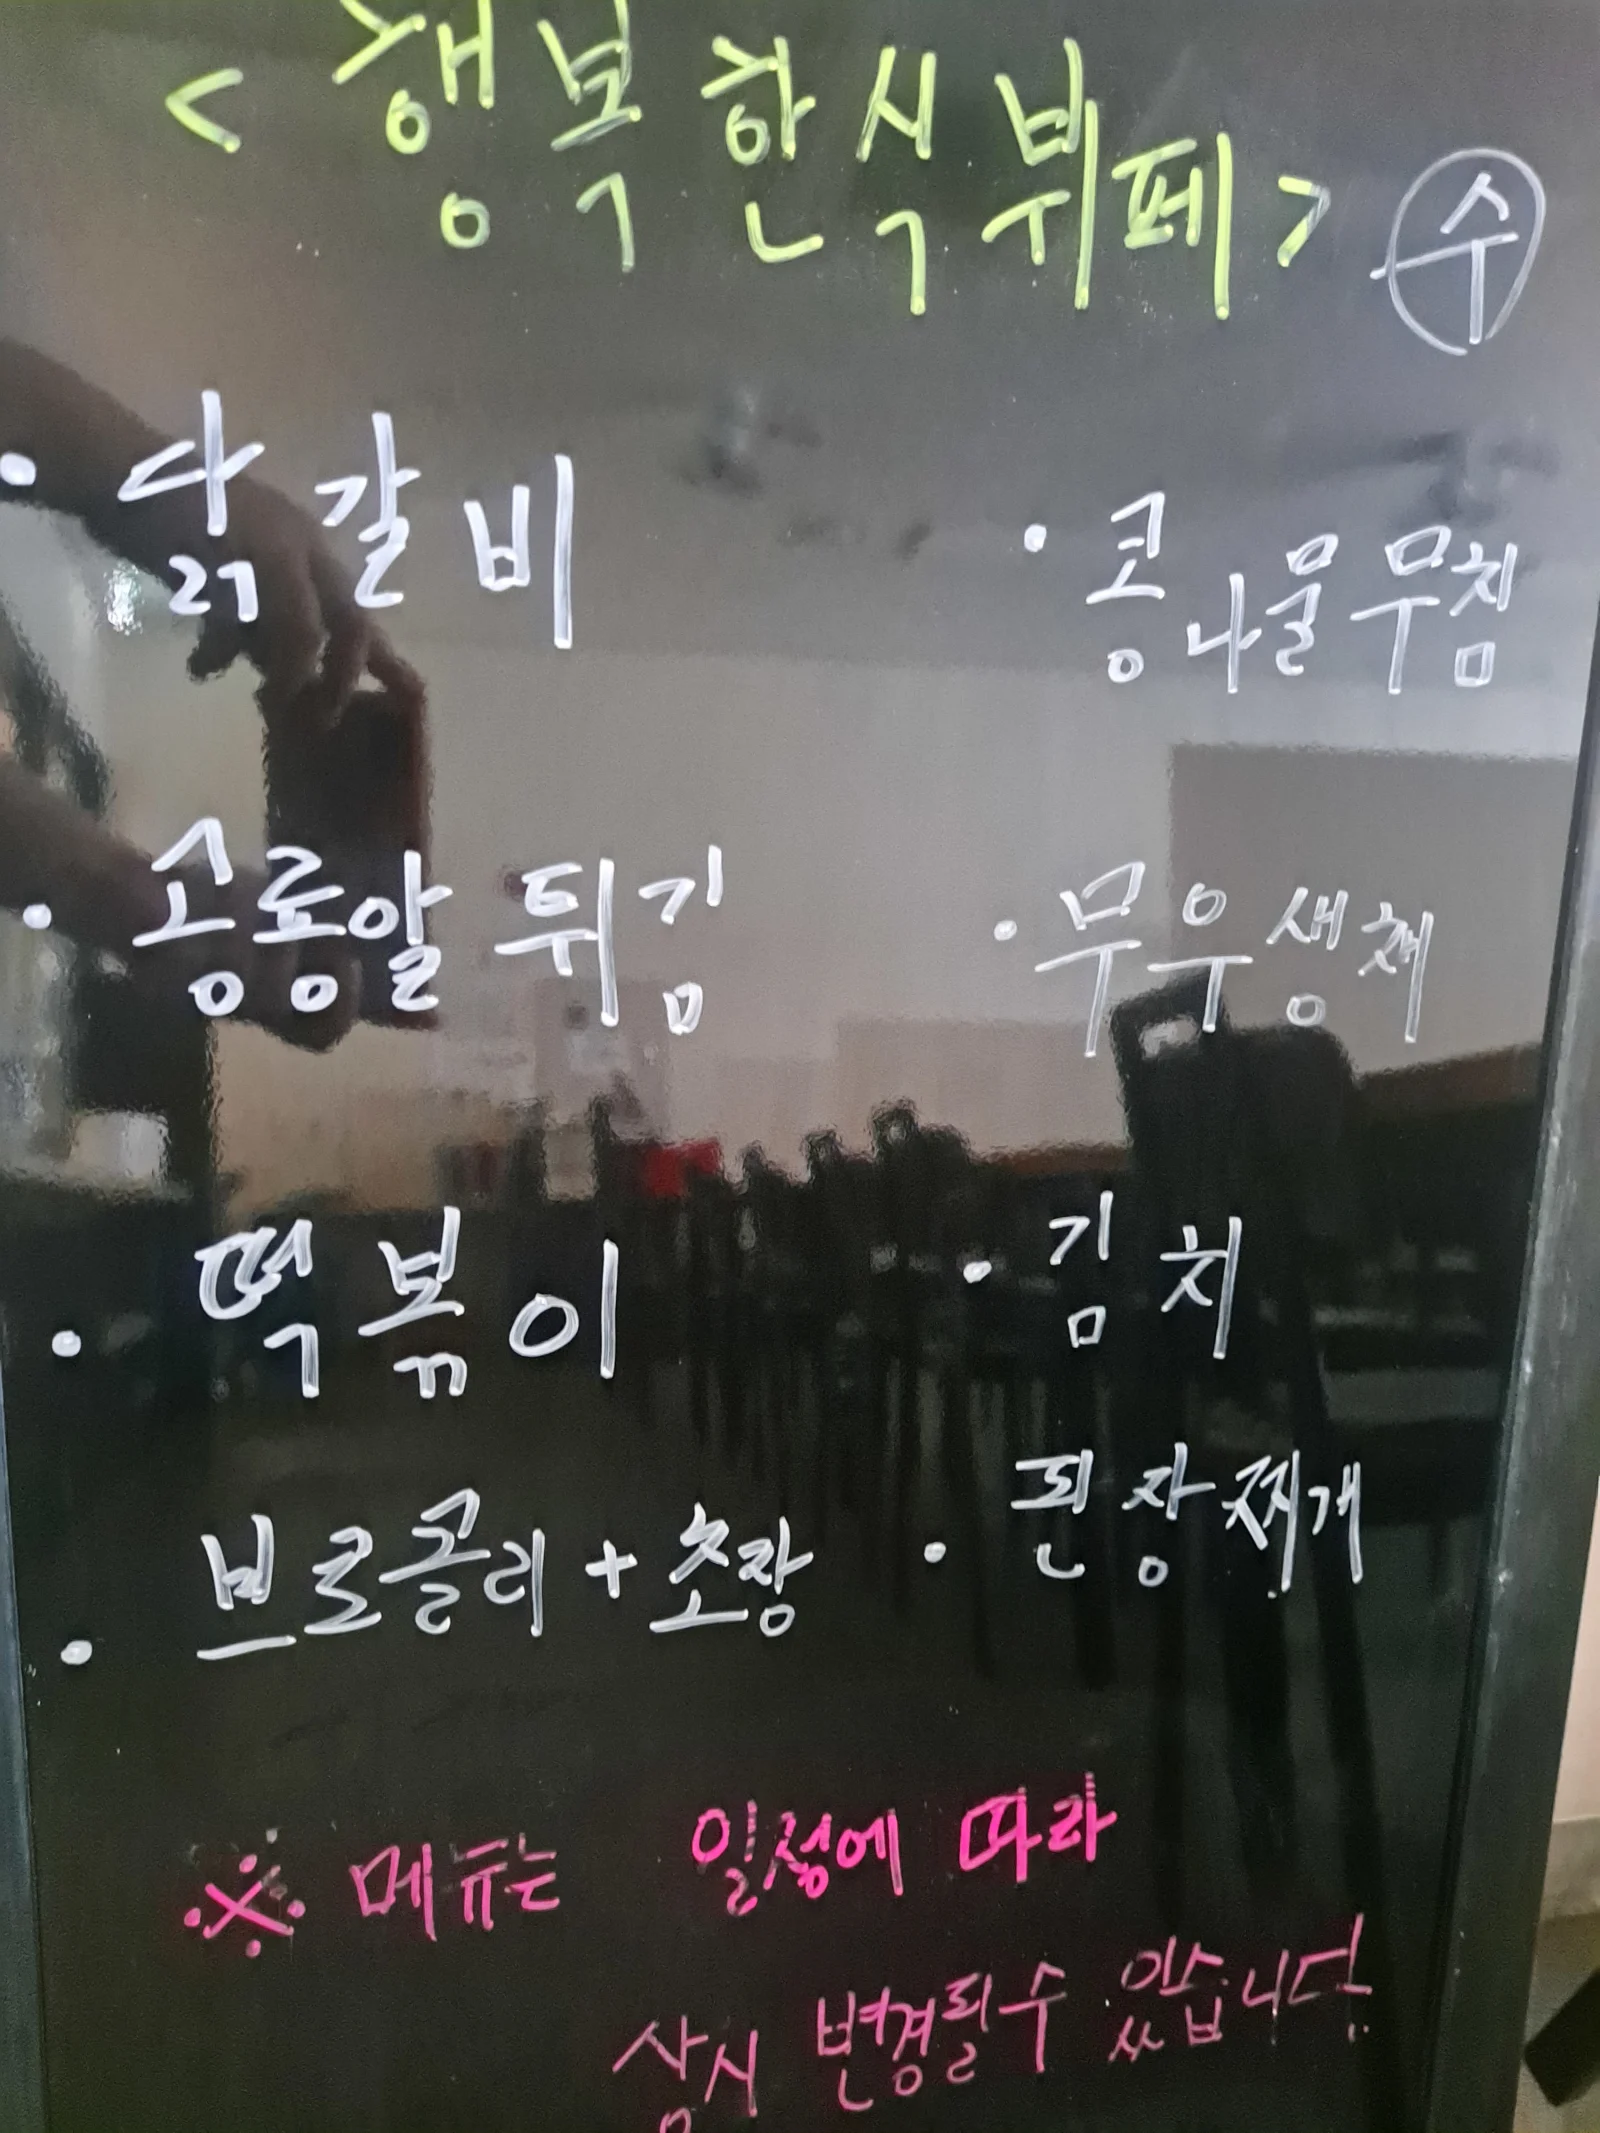 <행복한식뷔페> 수
• 닭갈비
• 콩나물무침
• 공룡알 튀김
• 무우생채
• 떡볶이
• 김치
• 브로콜리+초장
• 된장찌개
※ 메뉴는 일정에 따라
상시 변경될수 있습니다.